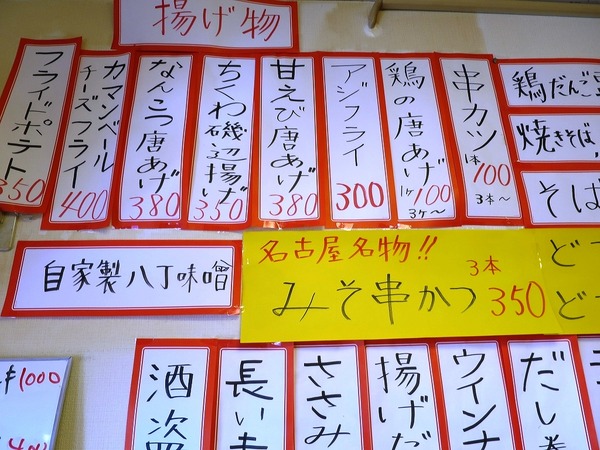 揚げ物
串カツ
1本100
3本〜
鶏の唐あげ
1ケ100
3ケ〜
アジフライ
300
甘えび唐あげ
380
ちくわ磯辺揚げ
350
なんこつ唐あげ
380
カマンベール
チーズフライ
400
フライドポテト
350
鶏だんご
焼きそば,
そば
自家製八丁味噌
名古屋名物!!
みそ串かつ
3本
350
ど
ど
だし巻
ウインナ
揚げだ
ささみ
長い
酒盗
1000